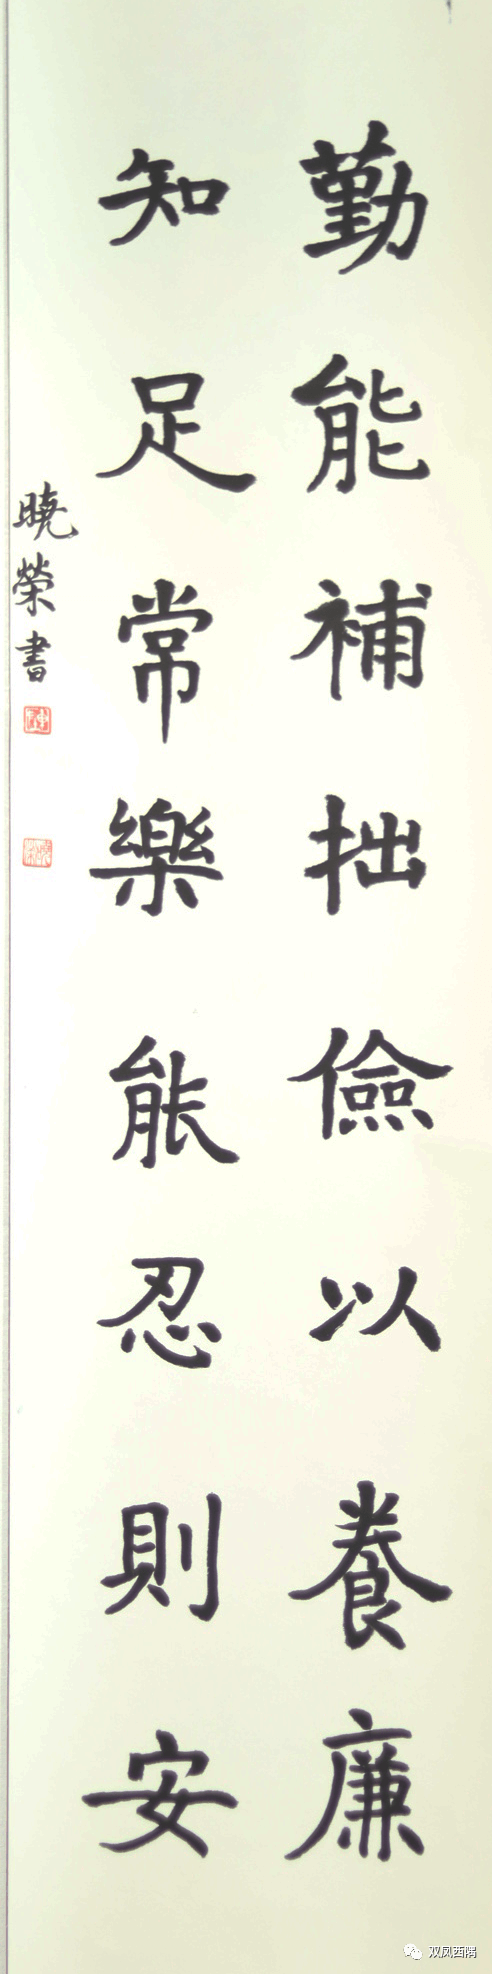 勤能補拙儉以養廉
知足常樂能忍則安
曉榮書
双凤西隅